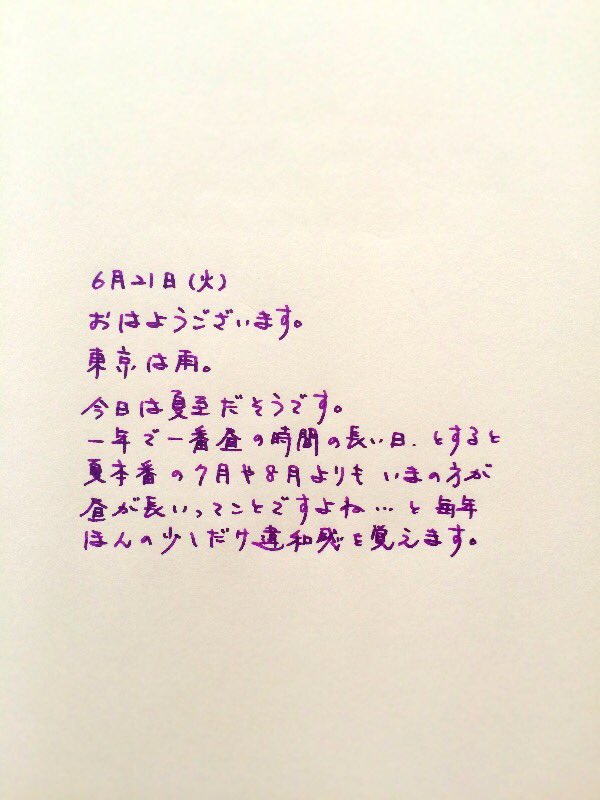 6月21日(火)
おはようございます。
東京は雨。
今日は夏至だそうです。
一年で一番昼の時間の長い日、とすると
夏本番の7月や8月よりも いまの方が
昼が長いってことですよね…と 毎年
ほんの少しだけ違和感を覚えます。